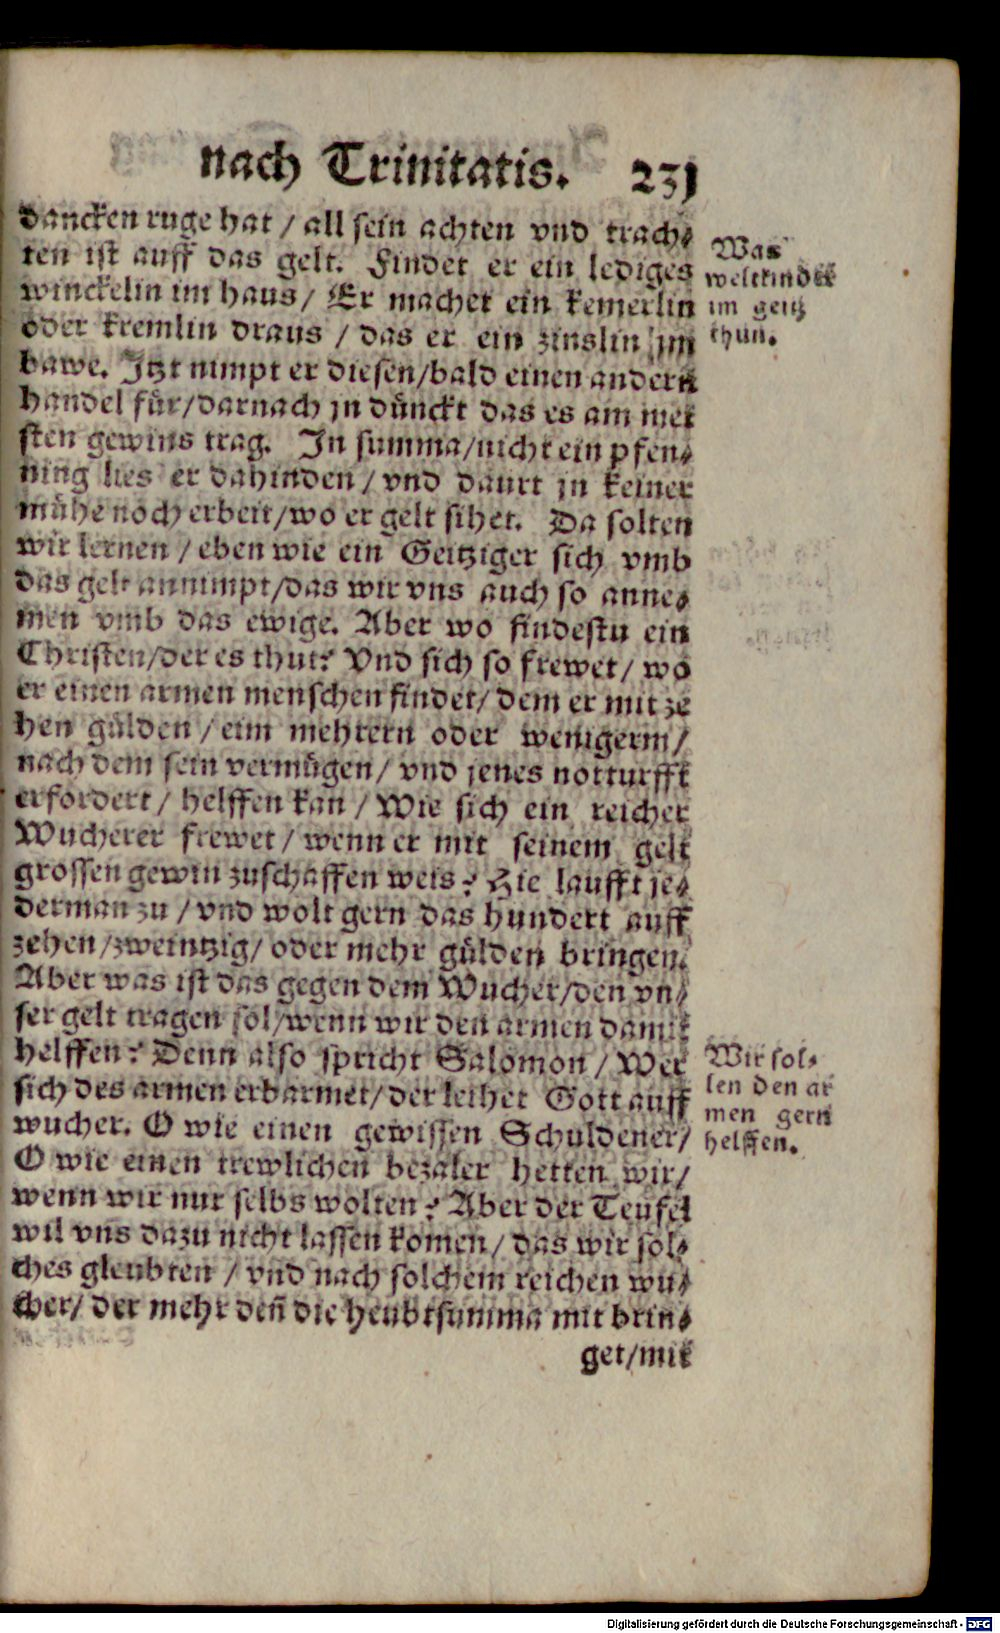 nach Trinitatis. 231
dancken ruge hat / all sein achten vnd trach⸗
ten ist auff das gelt. Findet er ein lediges
winckelin im haus / Er machet ein kemerlin
oder kremlin draus / das er ein zinslin jm
bawe. Itzt nimpt er diesen / bald einen andern
handel für / darnach jn dünckt das es am mei
sten gewins trag. In summa / nicht ein pfen⸗
ning lies er dahinden / vnd daurt jn keiner
mühe noch erbeit / wo er gelt sihet. Da solten
wir lernen / eben wie ein Geitziger sich vmb
das gelt annimpt / das wir vns auch so anne⸗
men vmb das ewige. Aber wo findestu ein
Christen / der es thut? Vnd sich so frewet / wo
er einen armen menschen findet / dem er mit ze
hen gülden / eim mehrern oder wenigerm /
nach dem sein vermügen / vnd jenes notturfft
erfordert / helffen kan / Wie sich ein reicher
Wucherer frewet / wenn er mit seinem gelt
grossen gewin zuschaffen weis? Hie laufft je⸗
derman zu / vnd wolt gern das hundert auff
zehen / zweintzig / oder mehr gülden bringen.
Aber was ist das gegen dem Wucher / den vn⸗
ser gelt tragen sol / wenn wir den armen damit
helffen? Denn also spricht Salomon / Wer
sich des armen erbarmet / der leihet Gott auff
wucher. O wie einen gewissen Schuldener /
O wie einen trewlichen bezaler hetten wir /
wenn wir nur selbs wolten? Aber der Teufel
wil vns dazu nicht lassen komen / das wir sol⸗
ches gleubten / vnd nach solchem reichen wu⸗
cher / der mehr deñ die heubtsumma mit brin⸗
get / mit
Was
weltkinder
im geitz
thun.
Wir sol⸗
len den ar
men gern
helffen.
Digitalisierung gefördert durch die Deutsche Forschungsgemeinschaft - DFG